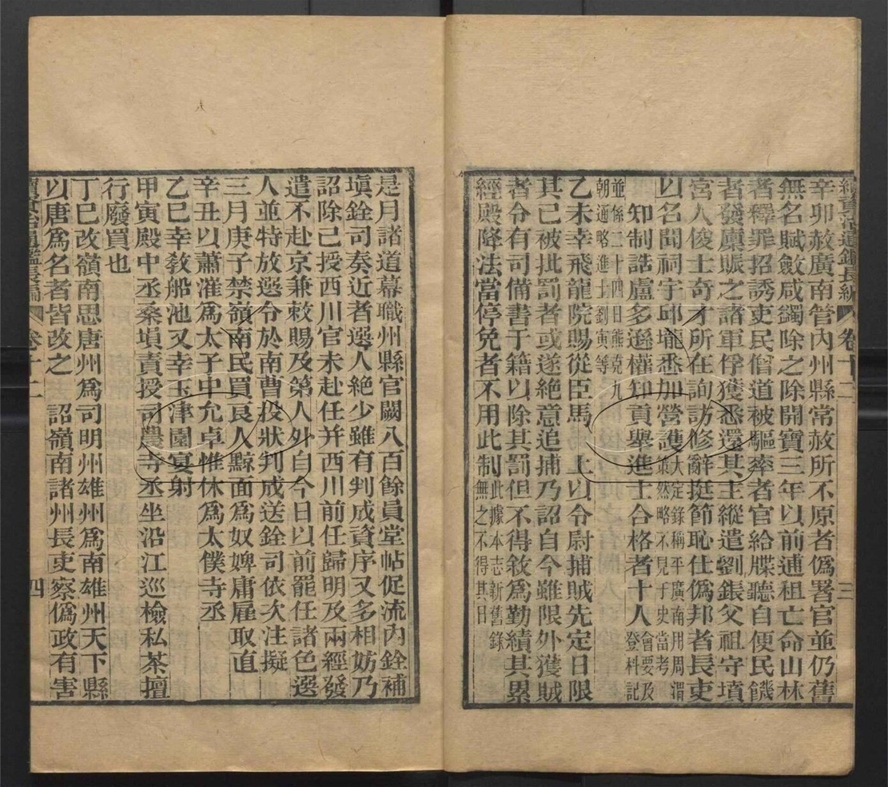 續資治通鑑長編 卷十二 三
辛卯赦廣南管內州縣常赦所不原者僞署官並仍舊
無名賦斂咸蠲除之除開寶三年以前逋租亡命山林
者釋罪招誘吏民僧道被驅率者官給牒聽自便民饑
者發廪賑之諸軍俘獲悉還其主縱遣劉鋹父祖守墳
宮人俊士奇才所在詢訪修辭挺節恥仕僞邦者長吏
以名聞祠宇邱壠悉加營護大定錄稱平廣南用周渭策然略不見于史當考
知制誥盧多遜權知貢舉進士合格者十人會要及登科記
並係二十四日熊克九朝通略進士劉寅等
乙未幸飛龍院賜從臣馬 上以令尉捕賊先定日限
其已被批罰者或遂絕意追捕乃詔自今雖限外獲賊
者令有司備書于籍以除其罰但不得敘爲勤績其累
經殿降法當停免者不用此制此據本志新舊錄無之不得其日
是月諸道幕職州縣官闕八百餘員堂帖促流內銓補
塡銓司奏近者選人絶少雖有判成資序又多相妨乃
詔除已授西川官未赴任并西川前任歸明及兩經發
遣不赴京兼敕賜及第人外自今日以前罷任諸色選
人並特放選令於南曹投狀判成送銓司依次注擬
三月庚子禁嶺南民買良人黥面爲奴婢庸雇取直
辛丑以蕭漼爲太子中允卓惟休爲太僕寺丞
乙巳幸敎船池又幸玉津園宴射
甲寅殿中丞桒塤責授司農寺丞坐沿江巡檢私茶擅
行廢買也
丁巳改嶺南思唐州爲司明州雄州爲南雄州天下縣
以唐爲名者皆改之 詔嶺南諸州長吏察僞政有害
續資治通鑑長編 卷十二 四